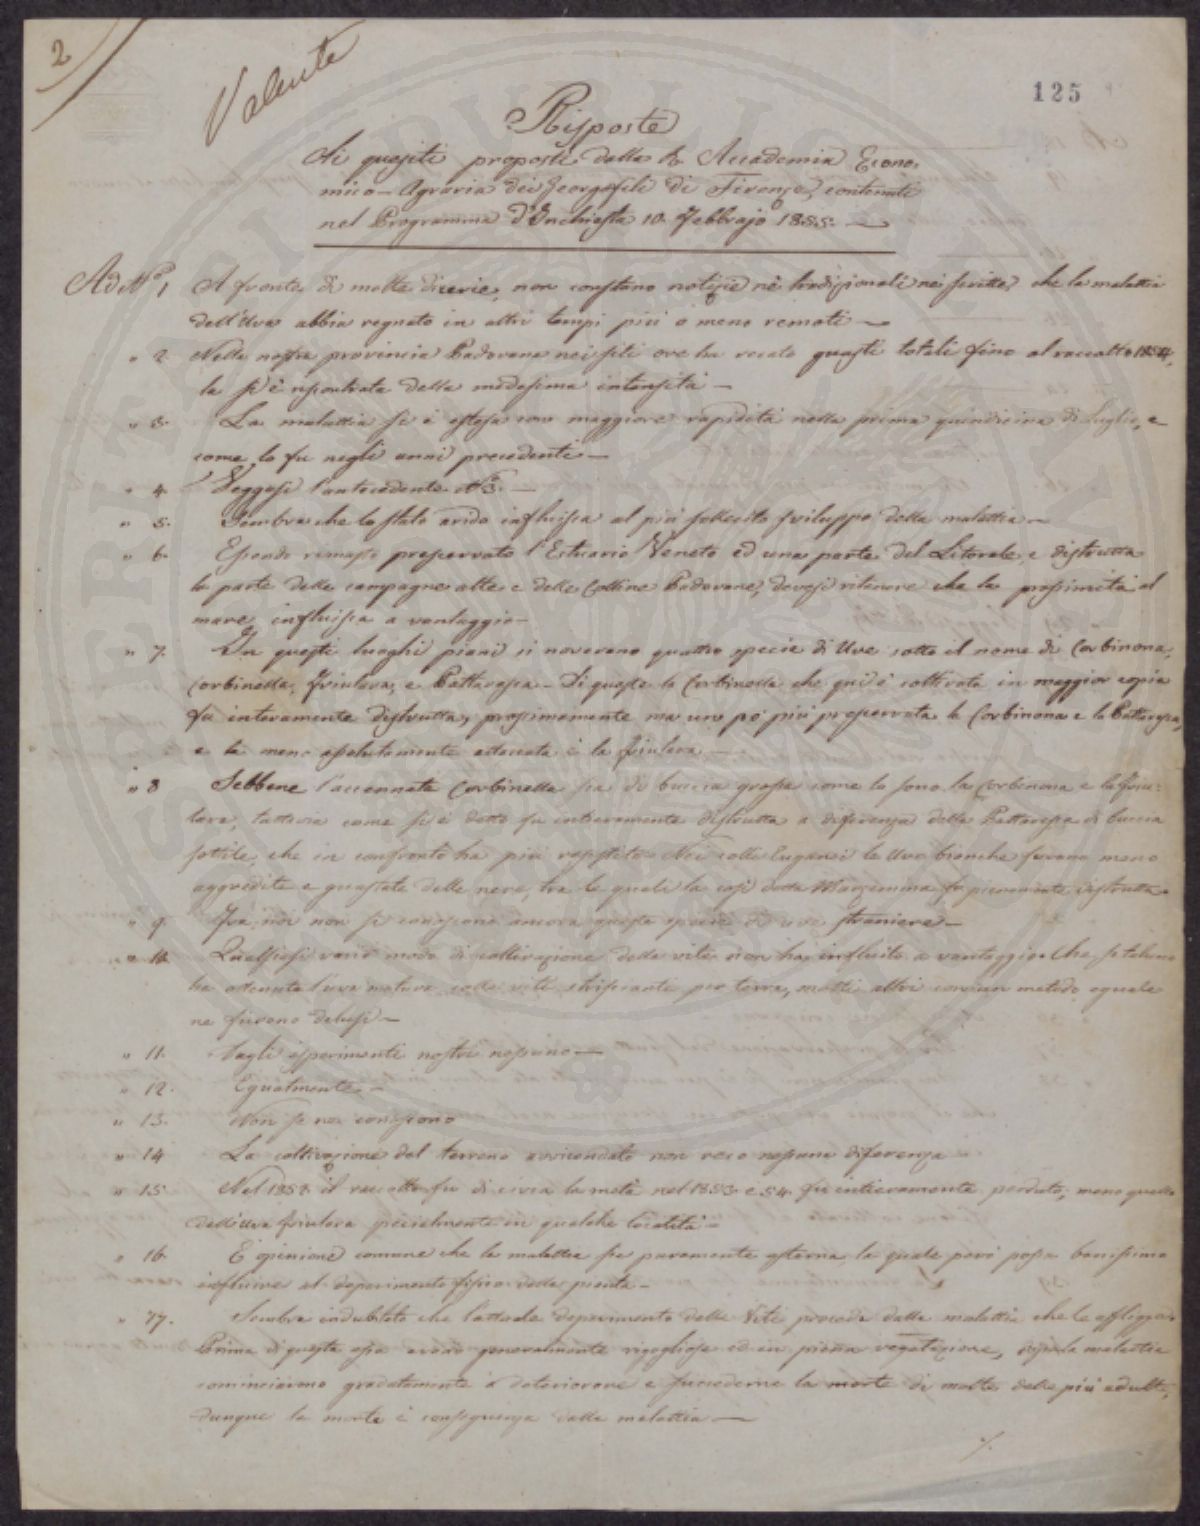 2
Valente
125
Risposte
Ai quesiti proposti dalla R. Accademia Econo-
mico-Agraria dei Georgofili di Firenze, contenuti
nel Programma d'Inchiesta 10 Febbrajo 1855.
Ad N.° 1 A fronte di molte dicerie, non constano notizie nè tradizionali nè scritte, che la malattia
dell'Uva abbia regnato in altri tempi più o meno remoti —
" 2. Nella nostra provincia Padovana nei siti ove ha recato guasti totali fino al raccolto 1854,
la si è riscontrata della medesima intensità —
" 3. La malattia si è estesa con maggiore rapidità nella prima quindicina di Luglio, e
come lo fu negli anni precedenti —
" 4. Veggasi l'antecedente N.° 3. —
" 5. Sembra che lo stato arido influisca al più sollecito sviluppo della malattia —
" 6. Essendo rimasto preservato l'Estuario Veneto ed una parte del Litorale, e distrutta
la parte delle campagne alte e delle Colline Padovane, devesi ritenere che la prossimità al
mare influisca a vantaggio —
" 7. In questi luoghi piani si noverano quattro specie di Uve sotto il nome di Corbinona,
Corbinella, Friulara, e Pattaresca — Di queste la Corbinella che quì è coltivata in maggior copia
fu interamente distrutta, prossimamente ma un pò più preservata la Corbinona e la Pattaresca,
e la meno assolutamente attaccata è la friulara —
" 8 Sebbene l'accennata Corbinella sia di buccia grossa come lo sono la Corbinona e la friu-
lara, tuttavia come si è detto fu interamente distrutta a differenza della Pattaresca di buccia
sottile, che in confronto ha più resistito. Nei colli Euganei le Uve bianche furono meno
aggredite e guastate delle nere, tra le quali la così detta Marzemina fu pienamente distrutta —
" 9. Fra noi non si conoscono ancora queste specie di uve straniere —
" 10. Qualsiasi vario modo di coltivazione delle viti non ha influito a vantaggio. Che se taluno
ha ottenuta l'uva matura colle viti striscianti per terra, molti altri con un metodo eguale
ne furono delusi —
" 11. Dagli esperimenti nostri nessuno —
" 12. Egualmente —
" 13. Non se ne conoscono
" 14 La coltivazione del terreno avvicendato non recò nessuna differenza
" 15. Nel 1852 il raccolto fu di circa la metà nel 1853 e 54 fu intieramente perduto, meno quello
dell'uva friulara specialmente in qualche località —
" 16. È opinione comune che la malattia sia puramente esterna, la quale però possa benissimo
influire al deperimento fisico della pianta —
" 17. Sembra indubitato che l'attuale deperimento delle Viti proceda dalla malattia che le affligge
Prima di questa essa erano generalmente rigogliose ed in piena vegetazione, dopo la malattia
cominciarono gradatamente a deteriorare e succederne la morte di molte delle più adulte,
dunque la morte è conseguenza della malattia —
./.